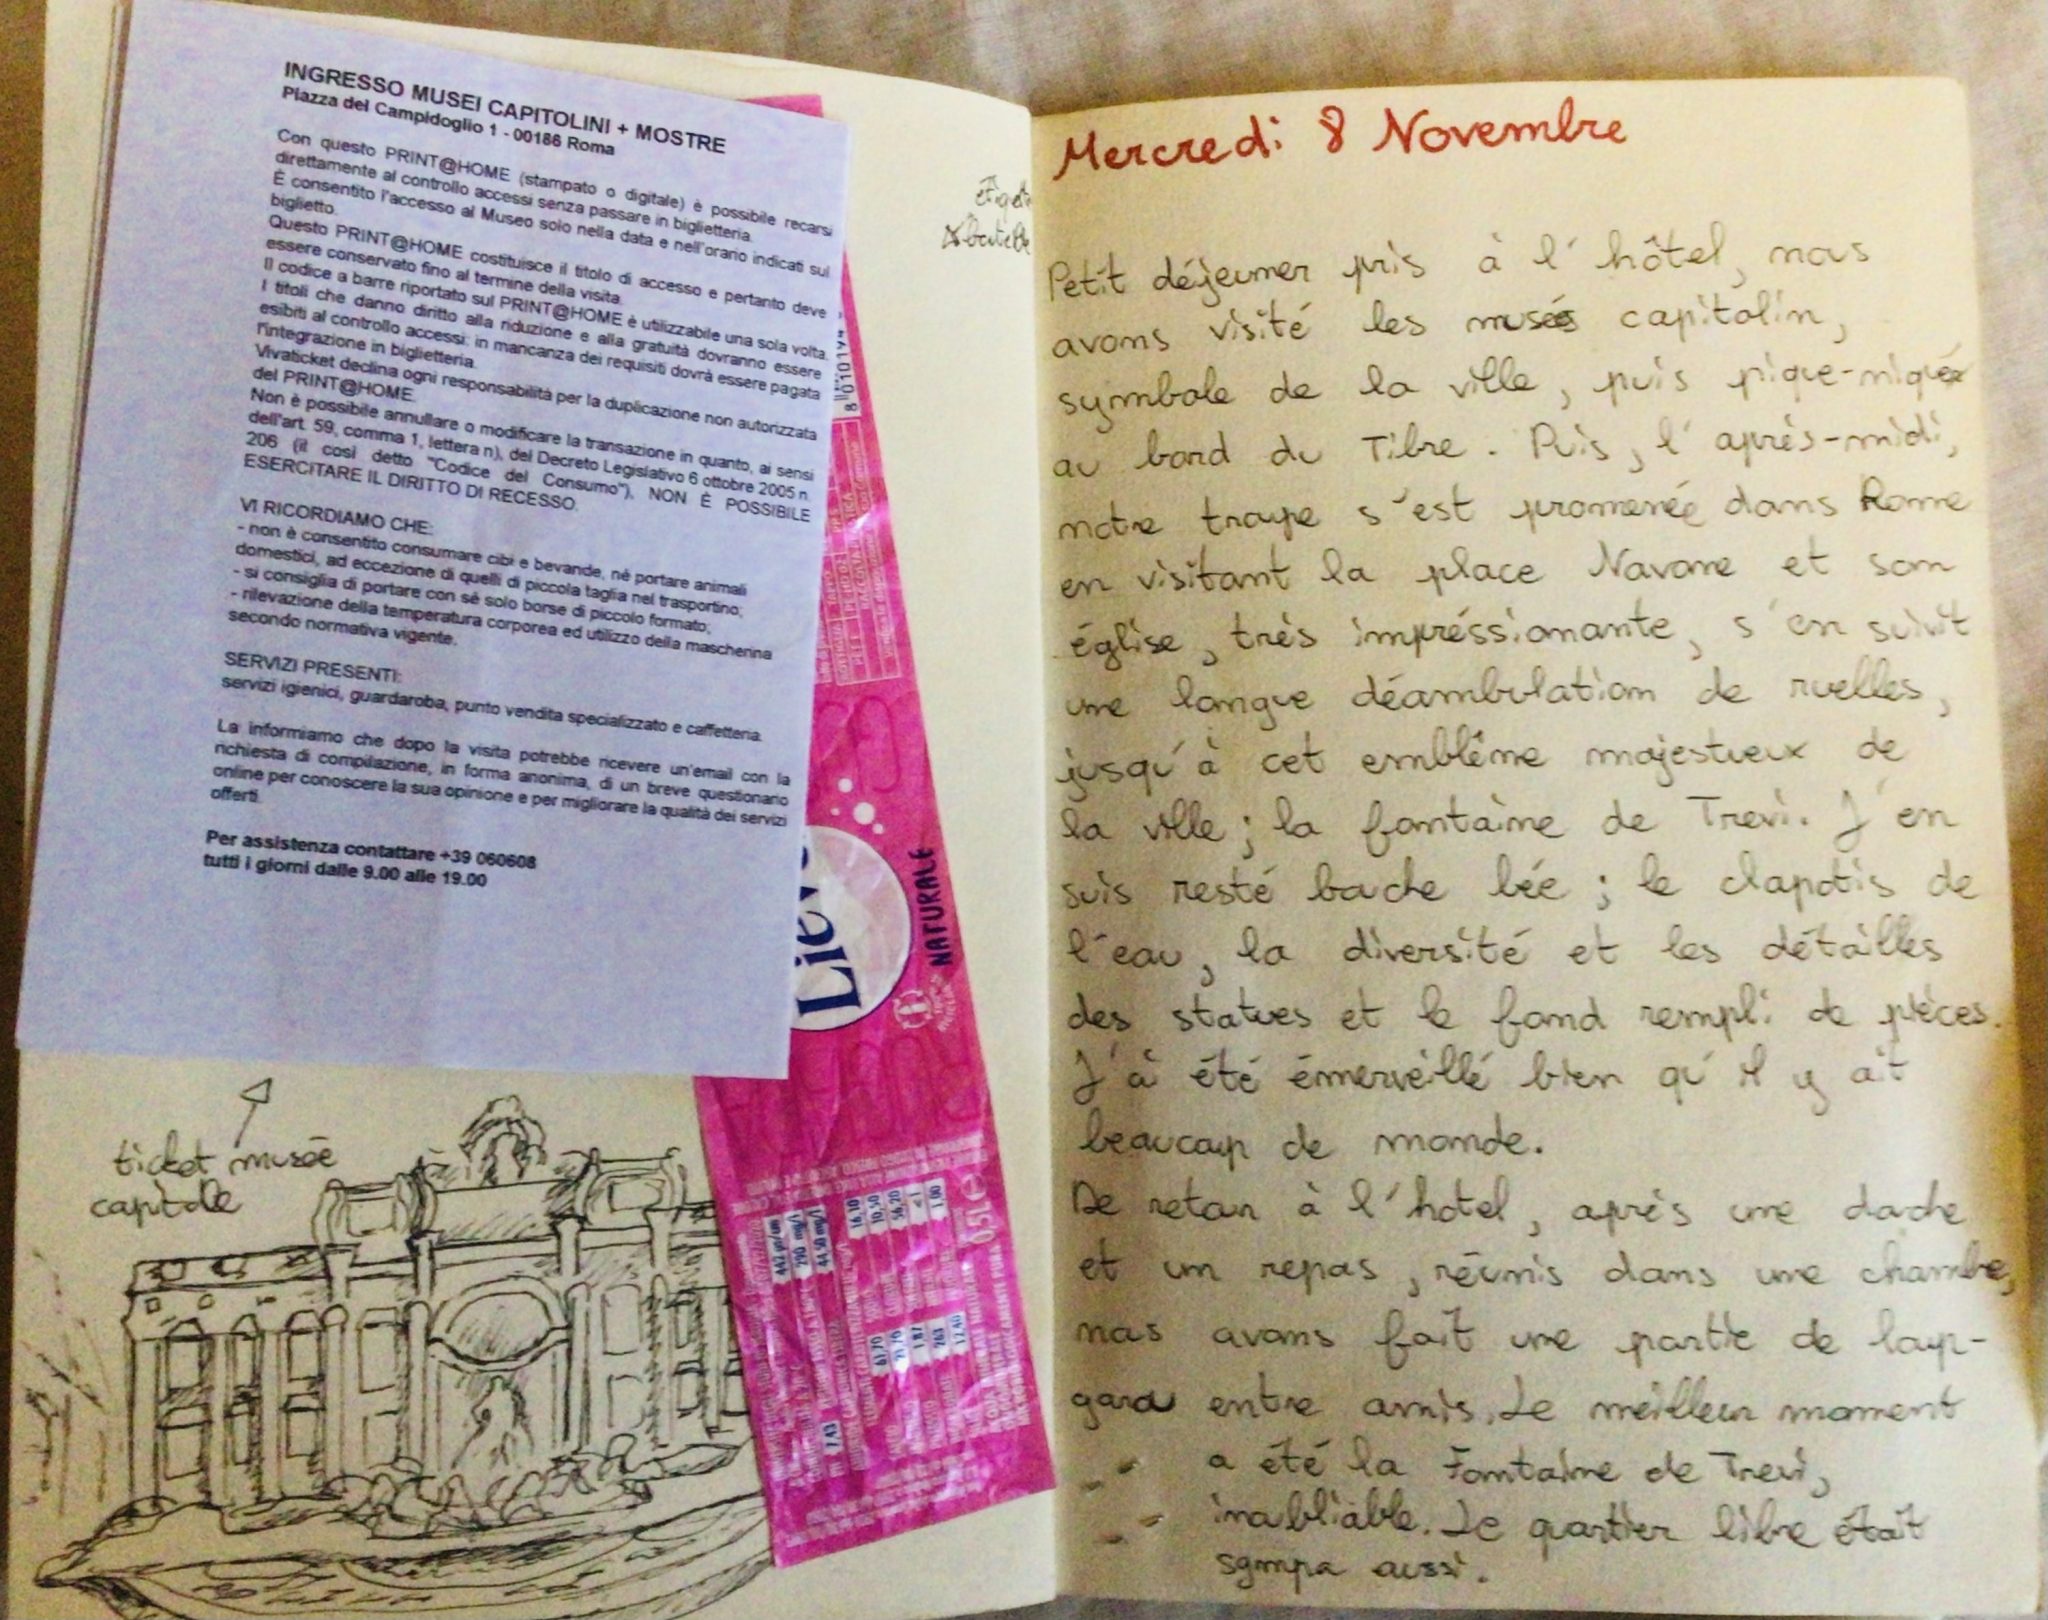 INGRESSO MUSEI CAPITOLINI + MOSTRE
Piazza del Campidoglio 1 - 00186 Roma
Con questo PRINT@HOME (stampato o digitale) è possibile recarsi
direttamente al controllo accessi senza passare in biglietteria.
È consentito l'accesso al Museo solo nella data e nell'orario indicati sul
biglietto.
Questo PRINT@HOME costituisce il titolo di accesso e pertanto deve
essere conservato fino al termine della visita.
Il codice a barre riportato sul PRINT@HOME è utilizzabile una sola volta.
I titoli che danno diritto alla riduzione e alla gratuità dovranno essere
esibiti al controllo accessi; in mancanza dei requisiti dovrà essere pagata
l'integrazione in biglietteria.
Vivaticket declina ogni responsabilità per la duplicazione non autorizzata
del PRINT@HOME.
Non è possibile annullare o modificare la transazione in quanto, ai sensi
dell'art. 59, comma 1, lettera n), del Decreto Legislativo 6 ottobre 2005 n.
206 (il così detto "Codice del Consumo"), NON È POSSIBILE
ESERCITARE IL DIRITTO DI RECESSO.
VI RICORDIAMO CHE:
- non è consentito consumare cibi e bevande, né portare animali
domestici, ad eccezione di quelli di piccola taglia nel trasportino;
- si consiglia di portare con sé solo borse di piccolo formato;
- rilevazione della temperatura corporea ed utilizzo della mascherina
secondo normativa vigente.
SERVIZI PRESENTI:
servizi igienici, guardaroba, punto vendita specializzato e caffetteria.
La informiamo che dopo la visita potrebbe ricevere un'email con la
richiesta di compilazione, in forma anonima, di un breve questionario
online per conoscere la sua opinione e per migliorare la qualità dei servizi
offerti.
Per assistenza contattare +39 060608
tutti i giorni dalle 9.00 alle 19.00
ticket musée
capitole
NATURALE
442 µs/cm
290 mg/l
44,50 mg/l
16,10
10,50
56,20
<1
1,00
61,70
21,76
1,87
263
12,40
7,43
0,5L e
Mercredi 8 Novembre
Petit déjeuner pris à l'hôtel, nous
avons visité les musés capitolin,
symbole de la ville, puis pique-niqué
au bord du Tibre. Puis, l'après-midi,
notre troupe s'est promenée dans Rome
en visitant la place Navone et son
église, très impréssionante, s'en suivit
une longue déambulation de ruelles,
jusqu'à cet emblême majestueux de
la ville ; la fontaine de Trevi. J'en
suis resté bouche bée ; le clapotis de
l'eau, la diversité et les détailles
des statues et le fond rempli de pièces.
J'à été émerveillé bien qu'il y ait
beaucoup de monde.
De retour à l'hotel, après une douche
et un repas, réunis dans une chambre,
nous avons fait une partie de loup-
garou entre amis. Le meilleur moment
a été la Fontaine de Trevi,
inoubliable. Le quartier libre était
sympa aussi.